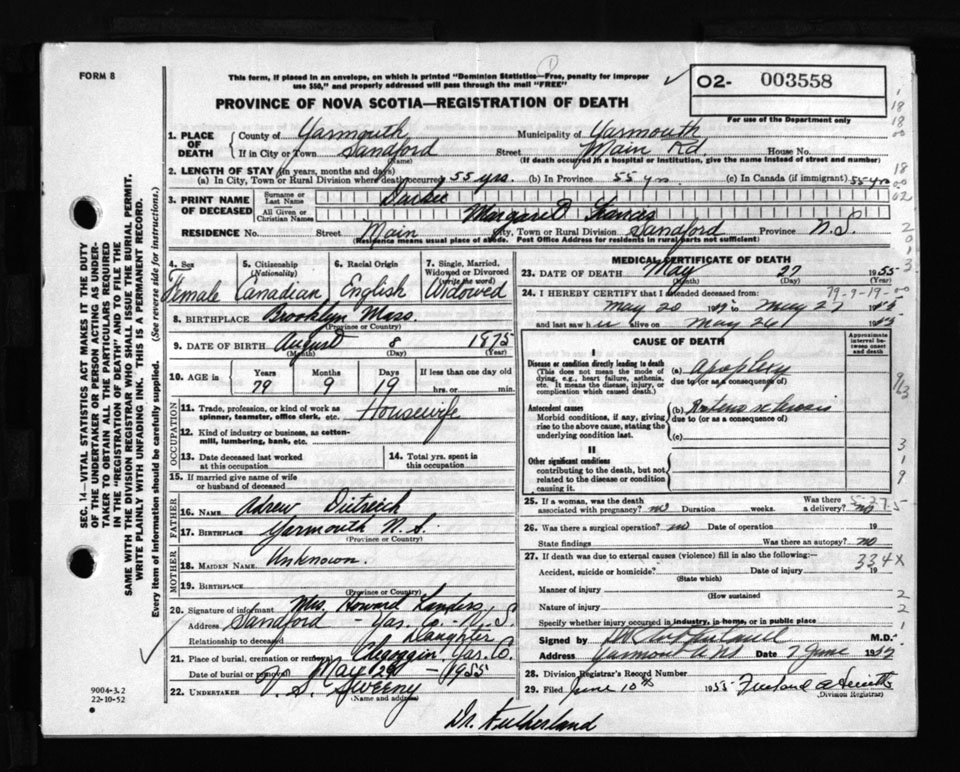 FORM 8
This form, if placed in an envelope, on which is printed "Dominion Statistics—Free, penalty for improper
use $50," and properly addressed will pass through the mail "FREE"
O2- 003558
For use of the Department only
PROVINCE OF NOVA SCOTIA—REGISTRATION OF DEATH
1. PLACE OF DEATH
County of Yarmouth Municipality of Yarmouth
If in City or Town Sandford Street Main Rd. House No.
(Name) (If death occurred in a hospital or institution, give the name instead of street and number)
2. LENGTH OF STAY (in years, months and days)
(a) In City, Town or Rural Division where death occurred 55 yrs. (b) In Province 55 yrs. (c) In Canada (if immigrant) 55 yrs
3. PRINT NAME OF DECEASED
Surname or Last Name
All Given or Christian Names Margaret Frances
RESIDENCE No. Street Main City, Town or Rural Division Sandford Province N.S.
(Residence means usual place of abode. Post Office Address for residents in rural parts not sufficient)
4. Sex Female
5. Citizenship (Nationality) Canadian
6. Racial Origin English
7. Single, Married, Widowed or Divorced (write the word) Widowed
8. BIRTHPLACE Brooklyn Mass.
(Province or Country)
9. DATE OF BIRTH August 8 1875
(Month) (Day) (Year)
10. AGE in Years Months Days If less than one day old
79 9 19 hrs. or min.
OCCUPATION
11. Trade, profession, or kind of work as spinner, teamster, office clerk, etc. Housewife
12. Kind of industry or business, as cotton-mill, lumbering, bank, etc.
13. Date deceased last worked at this occupation
14. Total yrs. spent in this occupation
15. If married give name of wife or husband of deceased
FATHER
16. NAME Adrew Dietreich
17. BIRTHPLACE Yarmouth N.S.
(Province or Country)
MOTHER
18. MAIDEN NAME Unknown.
19. BIRTHPLACE
(Province or Country)
20. Signature of informant Mrs. Howard Landers
Address Sandford - Yar. Co. - N.S.
Relationship to deceased Daughter
21. Place of burial, cremation or removal Chegoggin Yar. Co.
Date of burial or removal May 29 - 1955
22. UNDERTAKER V. S. Sweeny
(Name and Address)
MEDICAL CERTIFICATE OF DEATH
23. DATE OF DEATH May 27 1955
(Month) (Day) (Year)
79-9-19-00
24. I HEREBY CERTIFY that I attended deceased from:
May 20 1955 to May 27 1955
and last saw her alive on May 26 1955
CAUSE OF DEATH
Approximate interval between onset and death
I
Disease or condition directly leading to death (a) Apoplexy
(This does not mean the mode of dying, e.g., heart failure, asthenia, etc. It means the disease, injury, or complication which caused death.)
due to (or as a consequence of)
Antecedent causes (b) Arteriosclerosis
Morbid conditions, if any, giving rise to the above cause, stating the underlying condition last.
due to (or as a consequence of)
(c)
II
Other significant conditions contributing to the death, but not related to the disease or condition causing it.
25. If a woman, was the death associated with pregnancy? no Duration weeks. Was there a delivery? no
5-27-5
26. Was there a surgical operation? no Date of operation 19
State findings Was there an autopsy? no
27. If death was due to external causes (violence) fill in also the following:—
334X
Accident, suicide or homicide? Date of injury 19
(State which)
Manner of injury
(How sustained)
Nature of injury
Specify whether injury occurred in industry, in home, or in public place
Signed by M.D.
Address Yarmouth NS Date 7 June 1955
28. Division Registrar's Record Number
29. Filed June 10th 1955
(Division Registrar)
SEC. 14—VITAL STATISTICS ACT MAKES IT THE DUTY
OF THE UNDERTAKER OR PERSON ACTING AS UNDER-
TAKER TO OBTAIN ALL THE PARTICULARS REQUIRED
IN THE "REGISTRATION OF DEATH" AND TO FILE THE
SAME WITH THE DIVISION REGISTRAR WHO SHALL ISSUE THE BURIAL PERMIT.
WRITE PLAINLY WITH UNFADING INK. THIS IS A PERMANENT RECORD.
Every item of information should be carefully supplied. (See reverse side for instructions.)
9004-3.2
22-10-52